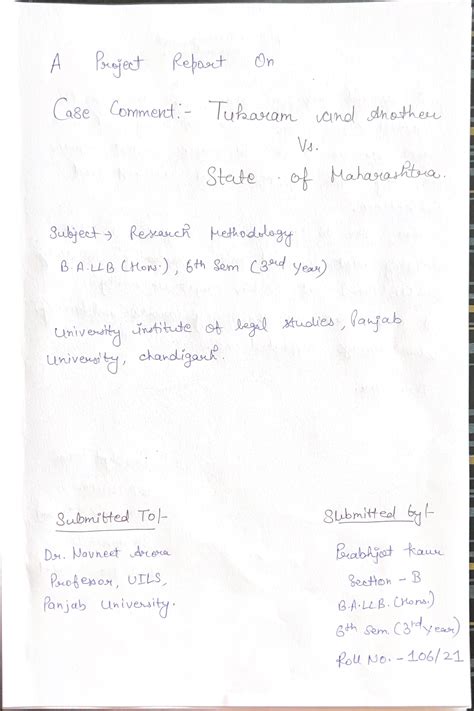 A Project Report On
Case Comment:- Tukaram and Another
Vs.
State of Maharashtra.
Subject → Research Methodology
B.A.LLB (Hons.), 6th Sem (3rd Year)
University institute of legal studies, Panjab
University, chandigarh.
Submitted To/-
Dr. Navneet Arora
Professor, UILS,
Panjab University.
Submitted by/-
Prabhjot Kaur
Section - B
B.A.LLB.(Hons.)
6th Sem (3rd year)
Roll No. - 106/21